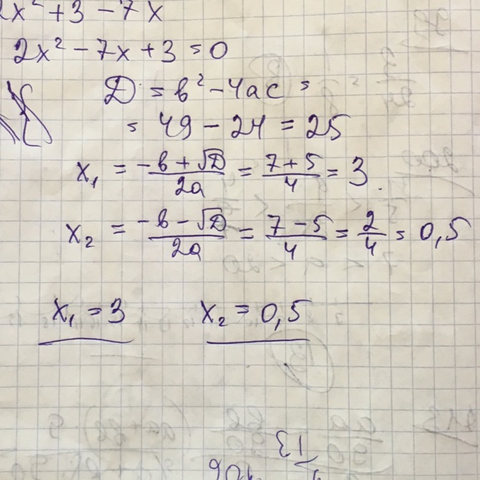 2x² + 3 - 7x
2x² - 7x + 3 = 0
D = в² - 4ac =
= 49 - 24 = 25
x₁ = (-в + √D)/2a = (7 + 5)/4 = 3.
x₂ = (-в - √D)/2a = (7 - 5)/4 = 2/4 = 0,5
x₁ = 3 x₂ = 0,5